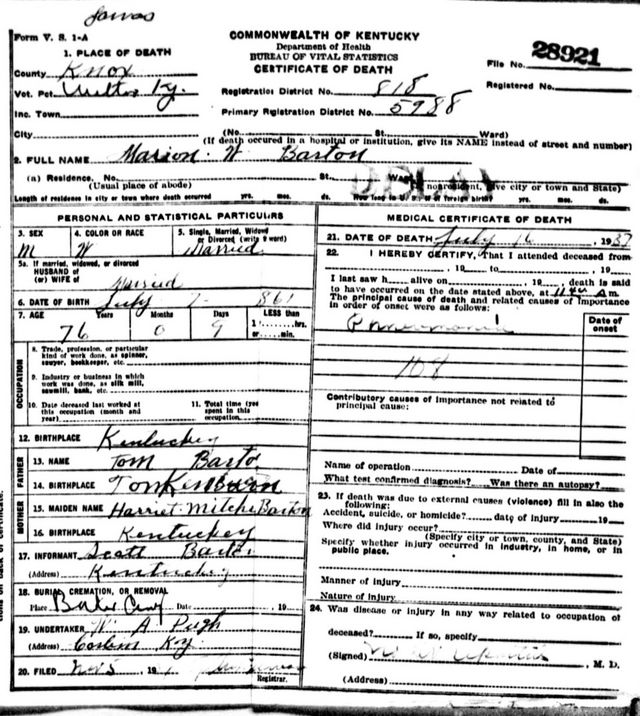 Form V. S. 1-A
COMMONWEALTH OF KENTUCKY
Department of Health
BUREAU OF VITAL STATISTICS
CERTIFICATE OF DEATH
File No. 28921
Registered No.
1. PLACE OF DEATH
County Knox
Vot. Pct. Ky.
Inc. Town
City
Registration District No. 818
Primary Rgistration District No. 5988
(No. St. Ward)
(If death occured in a hospital or institution, give its NAME instead of street and number)
2. FULL NAME Marion W Barton
(a) Residence. No. St. Ward
(Usual place of abode) nonresident, give city or town and State)
Length of residence in city or town where death occurred yrs. mos. ds. How long in U. S. if of foreign birth? yrs. mos. ds.
PERSONAL AND STATISTICAL PARTICULARS
3. SEX M
4. COLOR OR RACE W
5. Single, Married, Widowed or Divorced (write a word) Married
5a. If married, widowed, or divorced
HUSBAND of
(or) WIFE of Married
6. DATE OF BIRTH July 7 - 861
7. AGE 76 Years 0 Months 9 Days
LESS than
1 hrs.
or min.
OCCUPATION
8. Trade, profession, or particular
kind of work done, as spinner,
sawyer, bookkeeper, etc.
9. Industry or business in which
work was done, as silk mill,
sawmill, bank, etc.
10. Date deceased last worked at
this occupation (month and
year)
11. Total time (yrs
spent in this
occupation
12. BIRTHPLACE Kentuckey
FATHER
13. NAME Tom Barto
14. BIRTHPLACE
MOTHER
15. MAIDEN NAME Harriet Barton
16. BIRTHPLACE Kentuckey
17. INFORMANT Scott
(Address) Kentuckey
18. BURIAL CREMATION, OR REMOVAL
Place Date 19
19. UNDERTAKER W A Pugh
(Address) Corbin Ky
20. FILED Nov 5 19
Registrar.
MEDICAL CERTIFICATE OF DEATH
21. DATE OF DEATH July 16 1937
22. I HEREBY CERTIFY, That I attended deceased from
, 19 to , 19
I last saw h alive on , 19 , death is said
to have occurred on the date stated above, at 11 m
The principal cause of death and related causes of importance
in order of onset were as follows:
Date of
onset
108
Contributory causes of importance not related to
principal cause:
Name of operation Date of
What test confirmed diagnosis? Was there an autopsy?
23. If death was due to external causes (violence) fill in also the
following:
Accident, suicide, or homicide? date of injury 19
Where did injury occur?
(Specify city or town, county, and State)
Specify whether injury occurred in industry, in home, or in
public place.
Manner of injury
Nature of injury
24. Was disease or injury in any way related to occupation of
deceased? If so, specify
(Signed) , M. D.
(Address)